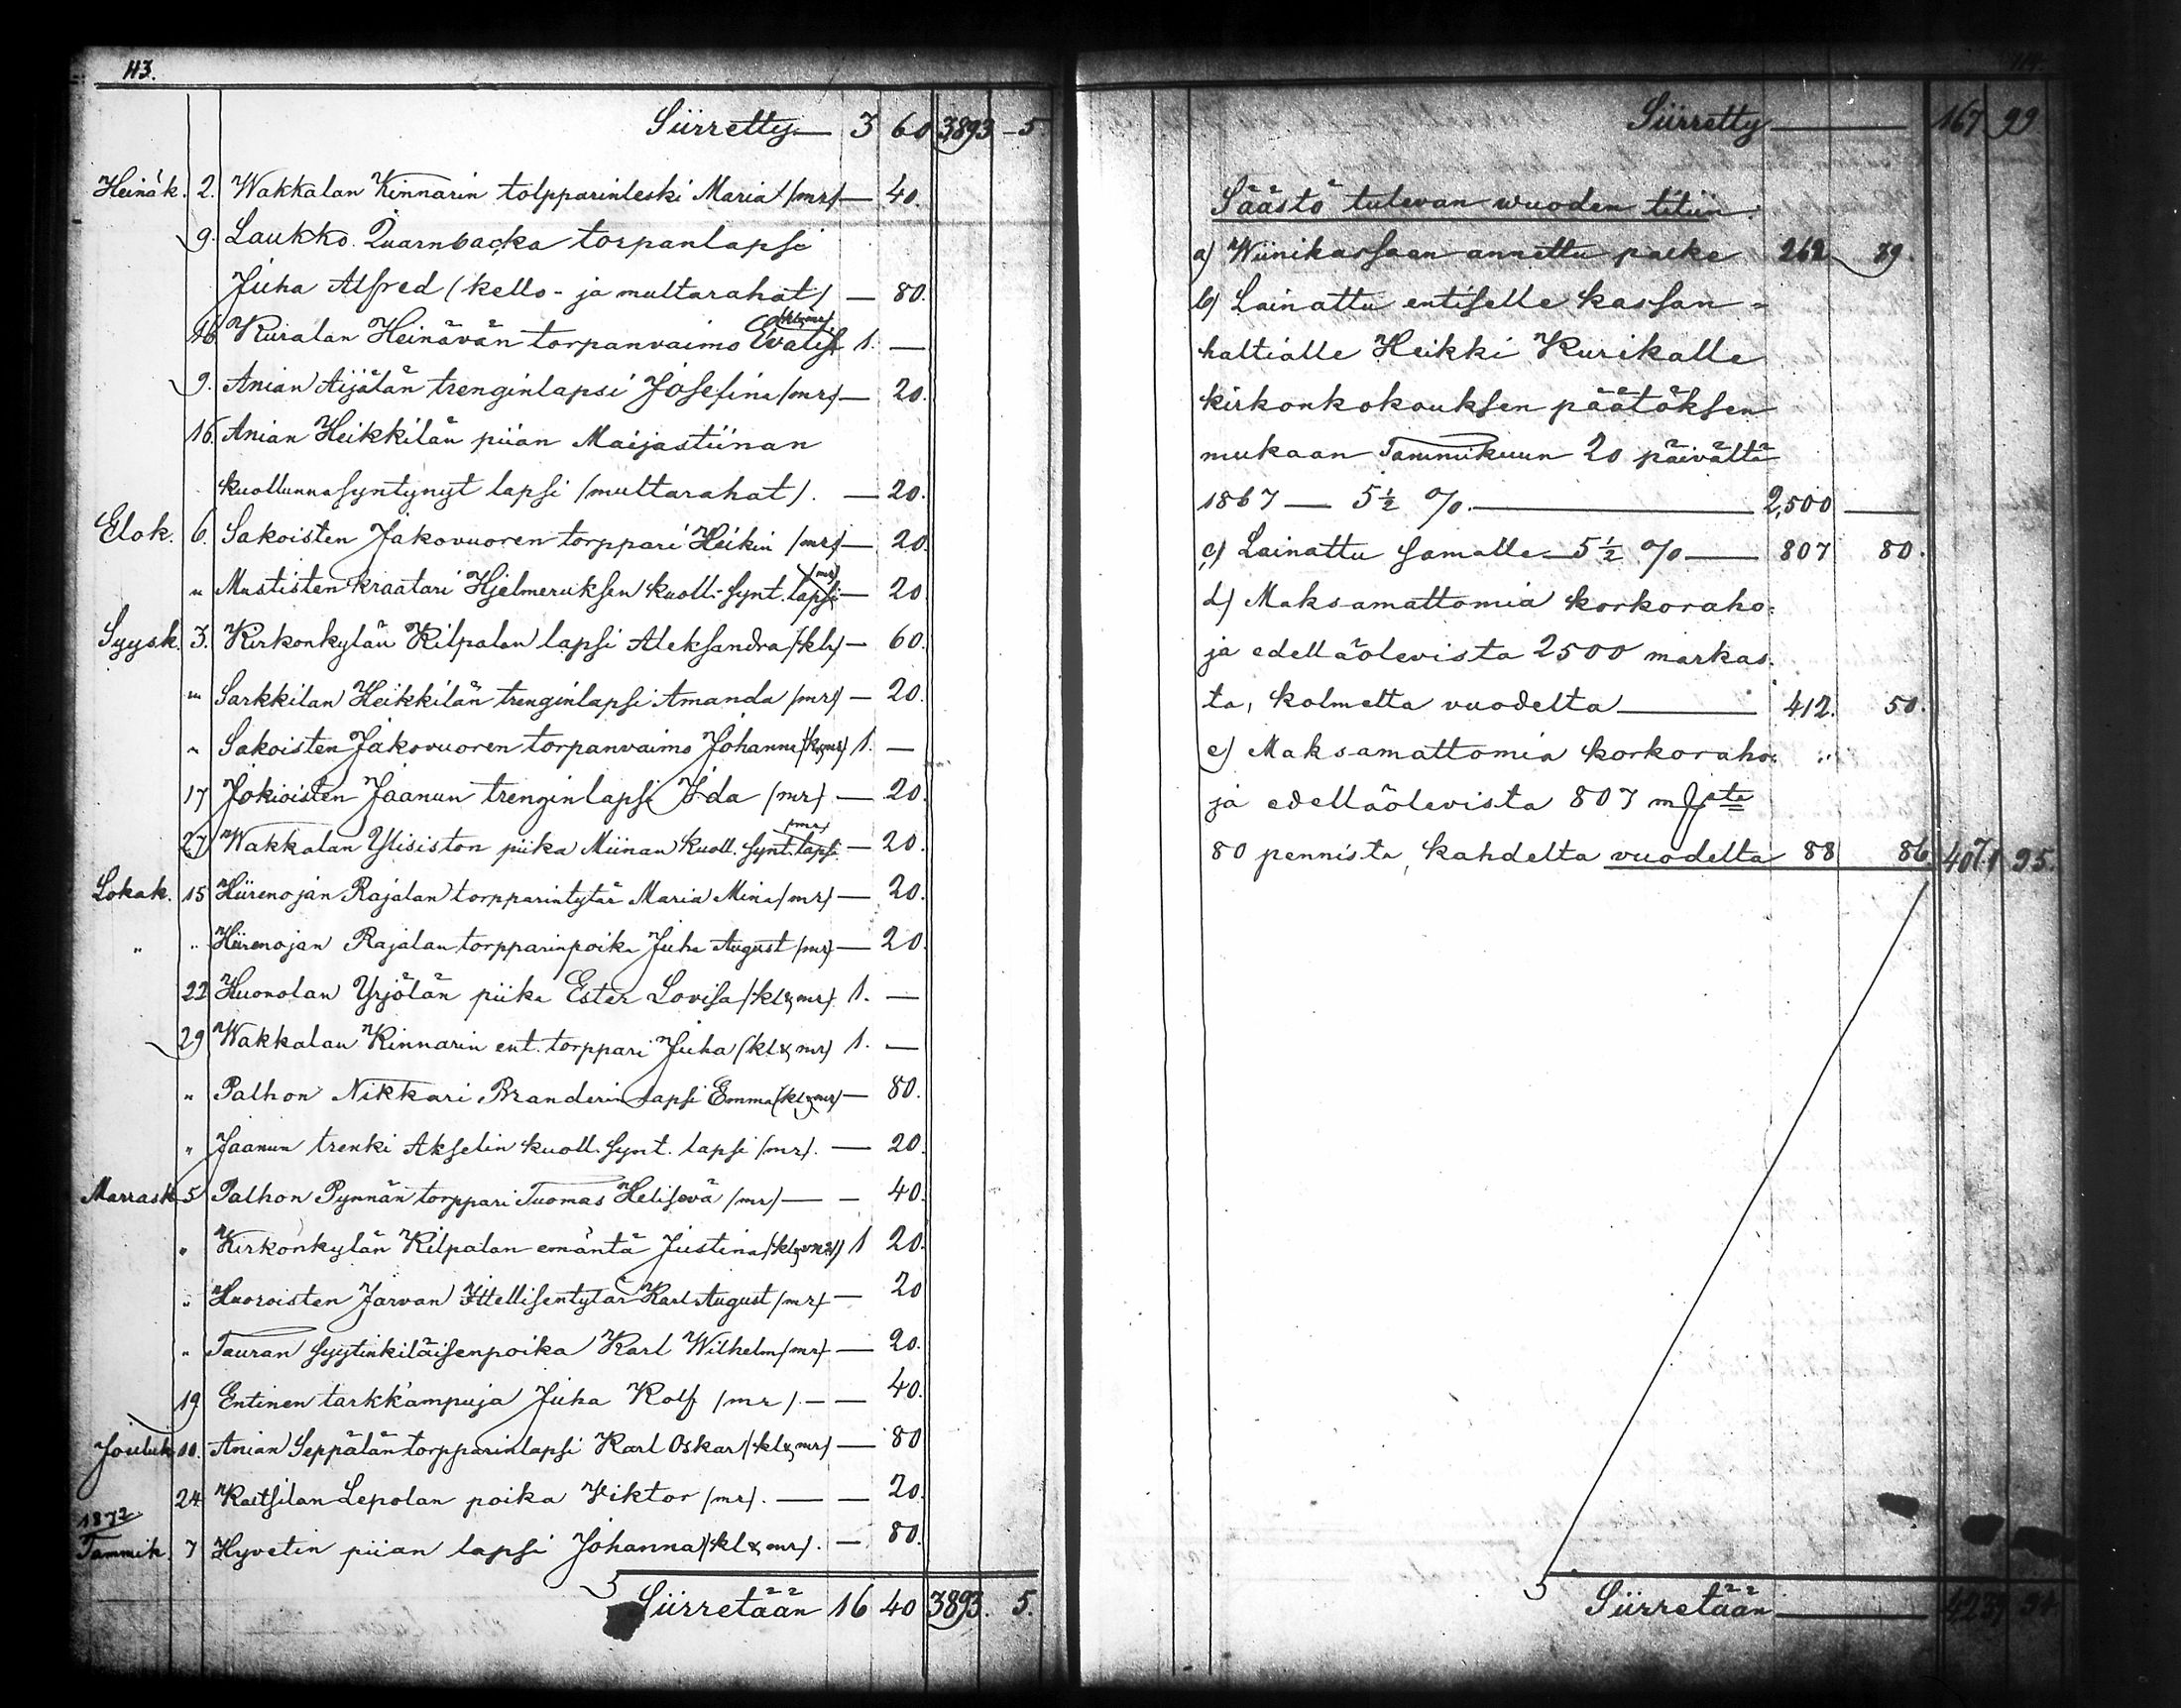 113.
Siirretty — 3 60 3893 – 5
Heinäk. 2. Wakkalan Kinnarin tolpparinleski Maria (mr) — 40.
9. Laukko Quarnbacka torpanlapsi
Juha Alfred (kello- ja multarahat) — 80.
16. Kuralan Heinävän torpanvaimo (kl&mr) 1. —
9. Anian Äijälän trenginlapsi Josefina (mr) — 20.
16. Anian Heikkilän piian Maijastiinan
kuollunnasyntynyt lapsi (multarahat). — 20.
Elok. 6. Sakoisten Jakovuoren torppari Heikin (mr) — 20.
" Mustisten kraatari Hjelmeruksen kuoll. synt. lapsi (mr) — 20
Syysk. 3. Kirkonkylän Kilpalan lapsi Aleksandra (kl) — 60.
" Sarkkilan Heikkilän trenginlapsi Amanda (mr) — 20.
" Sakoisten Jakovuoren torpanvaimo Johanna (kl&mr) 1. —
17 Jokioisten Jaanun trenginlapsi Ida (mr) — 20.
27 Wakkalan Ylisiston piika Miinan kuoll. synt. lapsi (mr) — 20.
Lokak. 15 Hiirenojan Rajalan torpparintytär Maria Mina (mr) — 20.
" " Hiirenojan Rajalan torpparinpoika Juha August (mr) — 20.
22 Huonolan Yrjölän piika Ester Lovisa (kl&mr) 1. —
29 Wakkalan Kinnarin ent. torppari Juha (kl&mr) 1. —
" Palhon Nikkari Branderin lapsi Emma (kl&mr) — 80.
" Jaanun trenki Akselin kuoll. synt. lapsi (mr). — 20.
Marrask 5 Palhon Pynnän torppari Tuomas Helisevä (mr) — — 40.
" Kirkonkylän Kilpalan emäntä Justina (kl&mr) 1 20.
" Huoroisten Järvan Ittellisentytär Karl August (mr) — 20
" Tauran syytinkiläisenpoika Karl Wilhelm (mr) — 20.
19 Entinen tarkk'ampuja Juha Rolf (mr). — — 40.
Jouluk 10. Anian Seppälän torpparinlapsi Karl Oskar (kl&mr) — 80
24 Kaitsilan Lepolan poika Viktor (mr). — — 20.
1872
Tammik. 7 Hyvetin piian lapsi Johanna (kl&mr). — 80.
Siirretään 16 40 3893. 5.
114.
Siirretty — 167 99
Säästö tulevan wuoden tiliin:
a) Wiinikassaan annettu palke 262 79.
b) Lainattu entiselle kassan=
haltialle Heikki Kurikalle
kirkonkokouksen päätöksen
mukaan Tammikuun 20 päivältä
1867 — 5½ %. — 2,500 —
c) Lainattu samalle 5½ % — 807 80.
d) Maksamattomia korkoraho=
ja edelläolevista 2500 markas=
ta, kolmelta vuodelta — 412. 50.
e) Maksamattomia korkoraho=
ja edelläolevista 807 mksta
80 pennista, kahdelta vuodelta 88 86. 4071 95.
Siirretään — 4239 94